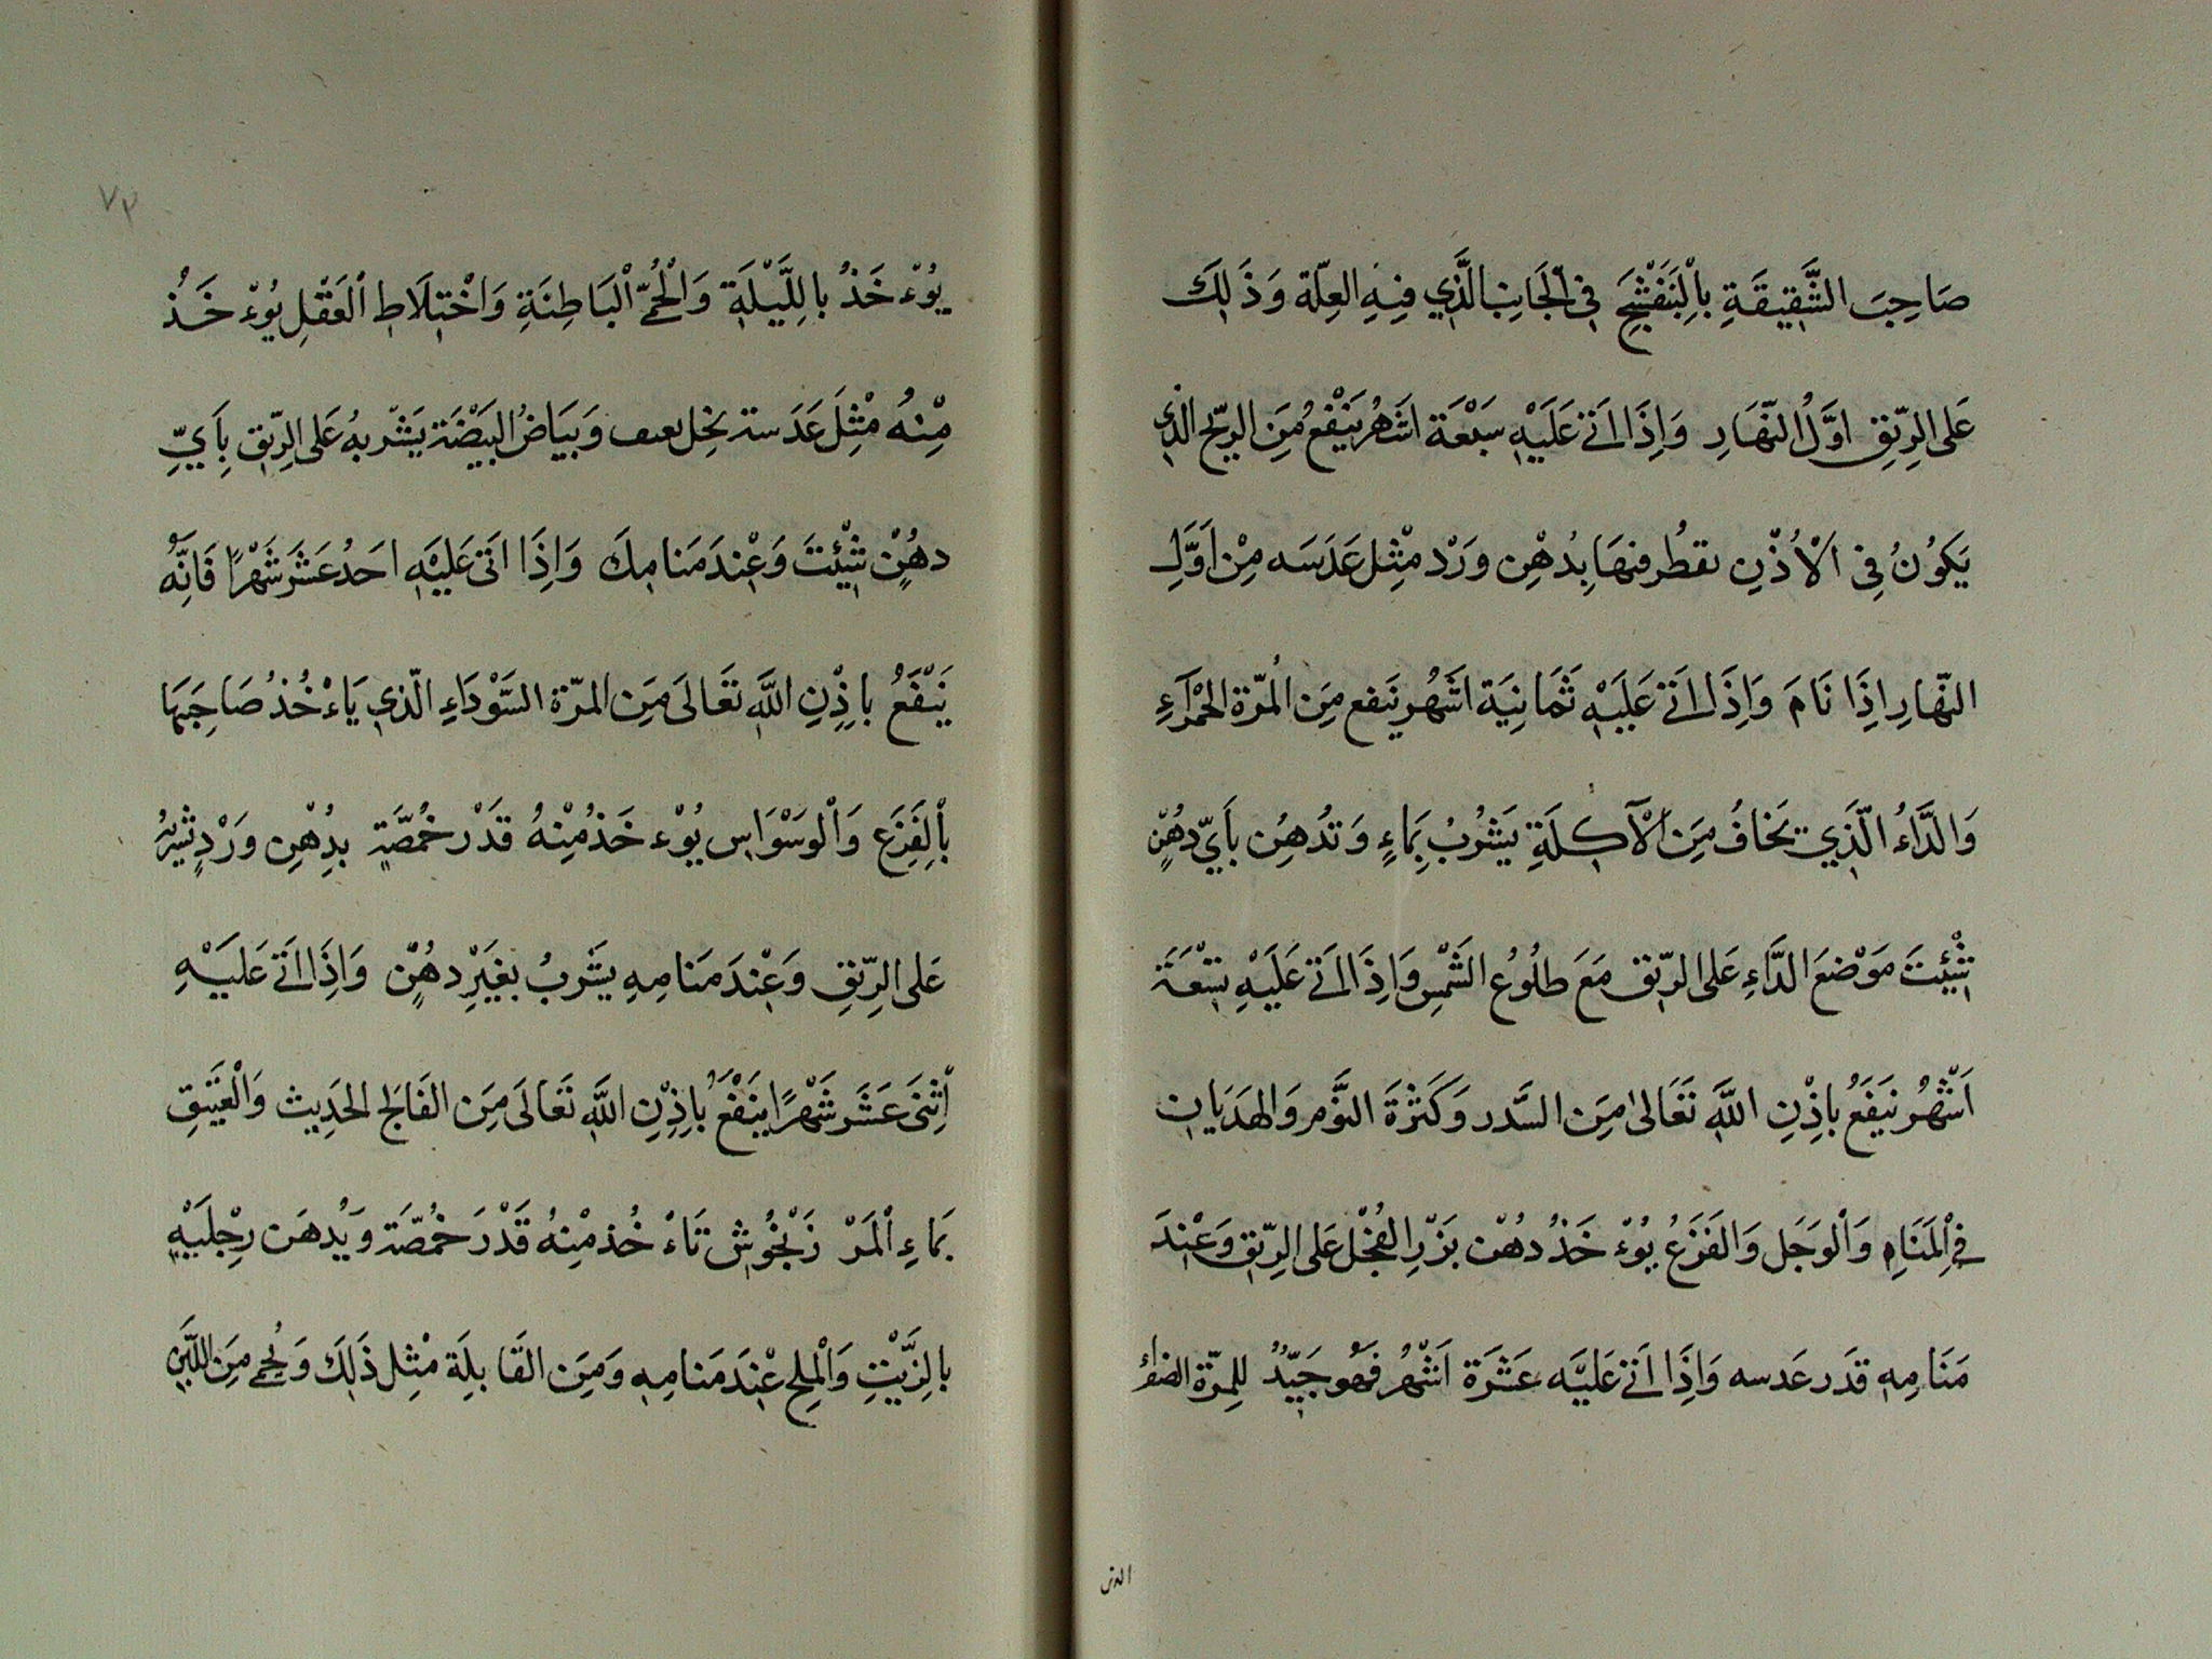 صَاحِبَ الشَّقِيقَةِ بِالْبَنَفْشَجِ فِي الْجَانِبِ الَّذِي فِيهِ العِلّة وَذَلِكَ
عَلى الرِّيِقِ اوَّلُ النّهَارِ وَاِذَا اَتَى عَلَيْهِ سَبْعَة اشَهُر يَنْفْعُ مِنَ الرّيح الذي
يَكوُنُ فِي الْاُذْنِ تقطُر فيهَا بِدُهْنِ وَرْد مْثِل عَدَسَه مِنْ اَوَّلِ
النّهارِ اِذَا نَامَ وَاِذَا اَتَى عَلَيْهِ ثَمَانِيَة اشَهُر يَنفع مِنَ الْمُرّة الحْمَرآءِ
وَالدَّاءُ الّذِي يَخافُ مِنَ الْآكِلَةِ يَشْرُبُ بِمَاءٍ وَتُدهِنُ بأيّ دهُنٍ
شِئْتَ مَوْضعَ الدَّاءِ عَلى الرّيق مَعَ طلُوُع الشَمْسِ وَاِذَا اَتَى عَلَيْهِ تِسْعَة
اَشْهُر يَنفَعُ بِاِذْنِ اللّٰهِ تَعَالىٰ مِنَ السَّدر وَكَثْرَةَ النَّوم وَالهدَيَان
فِي الْمَنَامِ وَالْوَجَل وَالفَزَعُ يُوْء خَذُ دُهْن بَزْرِ الفُجْل عَلى الرِّيق وَعْنِدَ
مَنَامِهِ قدَر عَدسه وَاِذَا اَتَى عَليَه عَشَرَة اَشْهُر فَهُو جَيّدٌ لِلمرّة الصفراء
الذى
٧٣
يُوْء خَذُ بالِلَّيْلَةِ وَالْحُمّى الْبَاطِنَةِ وَاخْتِلَاطِ الْعَقْلِ يُوْء خَذُ
مِنْهُ مْثِلَ عَدَسة بخل وَبَيَاضُ البَيْضَة يَشْربهُ عَلى الرِّيق بِأيِّ
دهُنٍ شْئِتَ وَعْنِدَ مَنامِكَ وَاِذَا اَتى عَليَهِ احَدُ عَشَر شَهْرًا فَاِنَّهُ
يَنْفَعُ بِاِذْنِ اللّٰهِ تعَالىَ مِنَ المرّة السَّوْدَاءِ الّذي يَاْءخُذُ صَاحِبَهَا
بِالْفَزَع وَالْوَسْوَاسِ يُوْء خَذُ مْنِهُ قَدْر حُمصَّةٍ بِدُهْنِ وَرْدٍ يشربهُ
عَلى الرِّيقِ وَعْنِدَ مَنامِهِ يشَربُ بغَيْرِ دهُنٍ وَاِذَا اَتَى عَليَهِْ
اِثْنَى عَشَر شَهْرًا يَنْفَعُ بِاِذْنِ اللّٰهِ تَعَالَى مِنَ الفَالج الحَدِيث وَالْعَتِيقِ
بَماءِ الْمَرْ زَنْجُوشِ تَاءْ خُذ مْنِهُ قَدْرَ حُمصَّة وَيُدهَن رِجْليَهِ
بالِزَّيْتِ وَالْمِلحِ عْنِدَ مَنامِهِ وَمِنَ القَا بلِةَ مْثِل ذَلِكَ وَيُحمى مِنَ اللّبَنِ